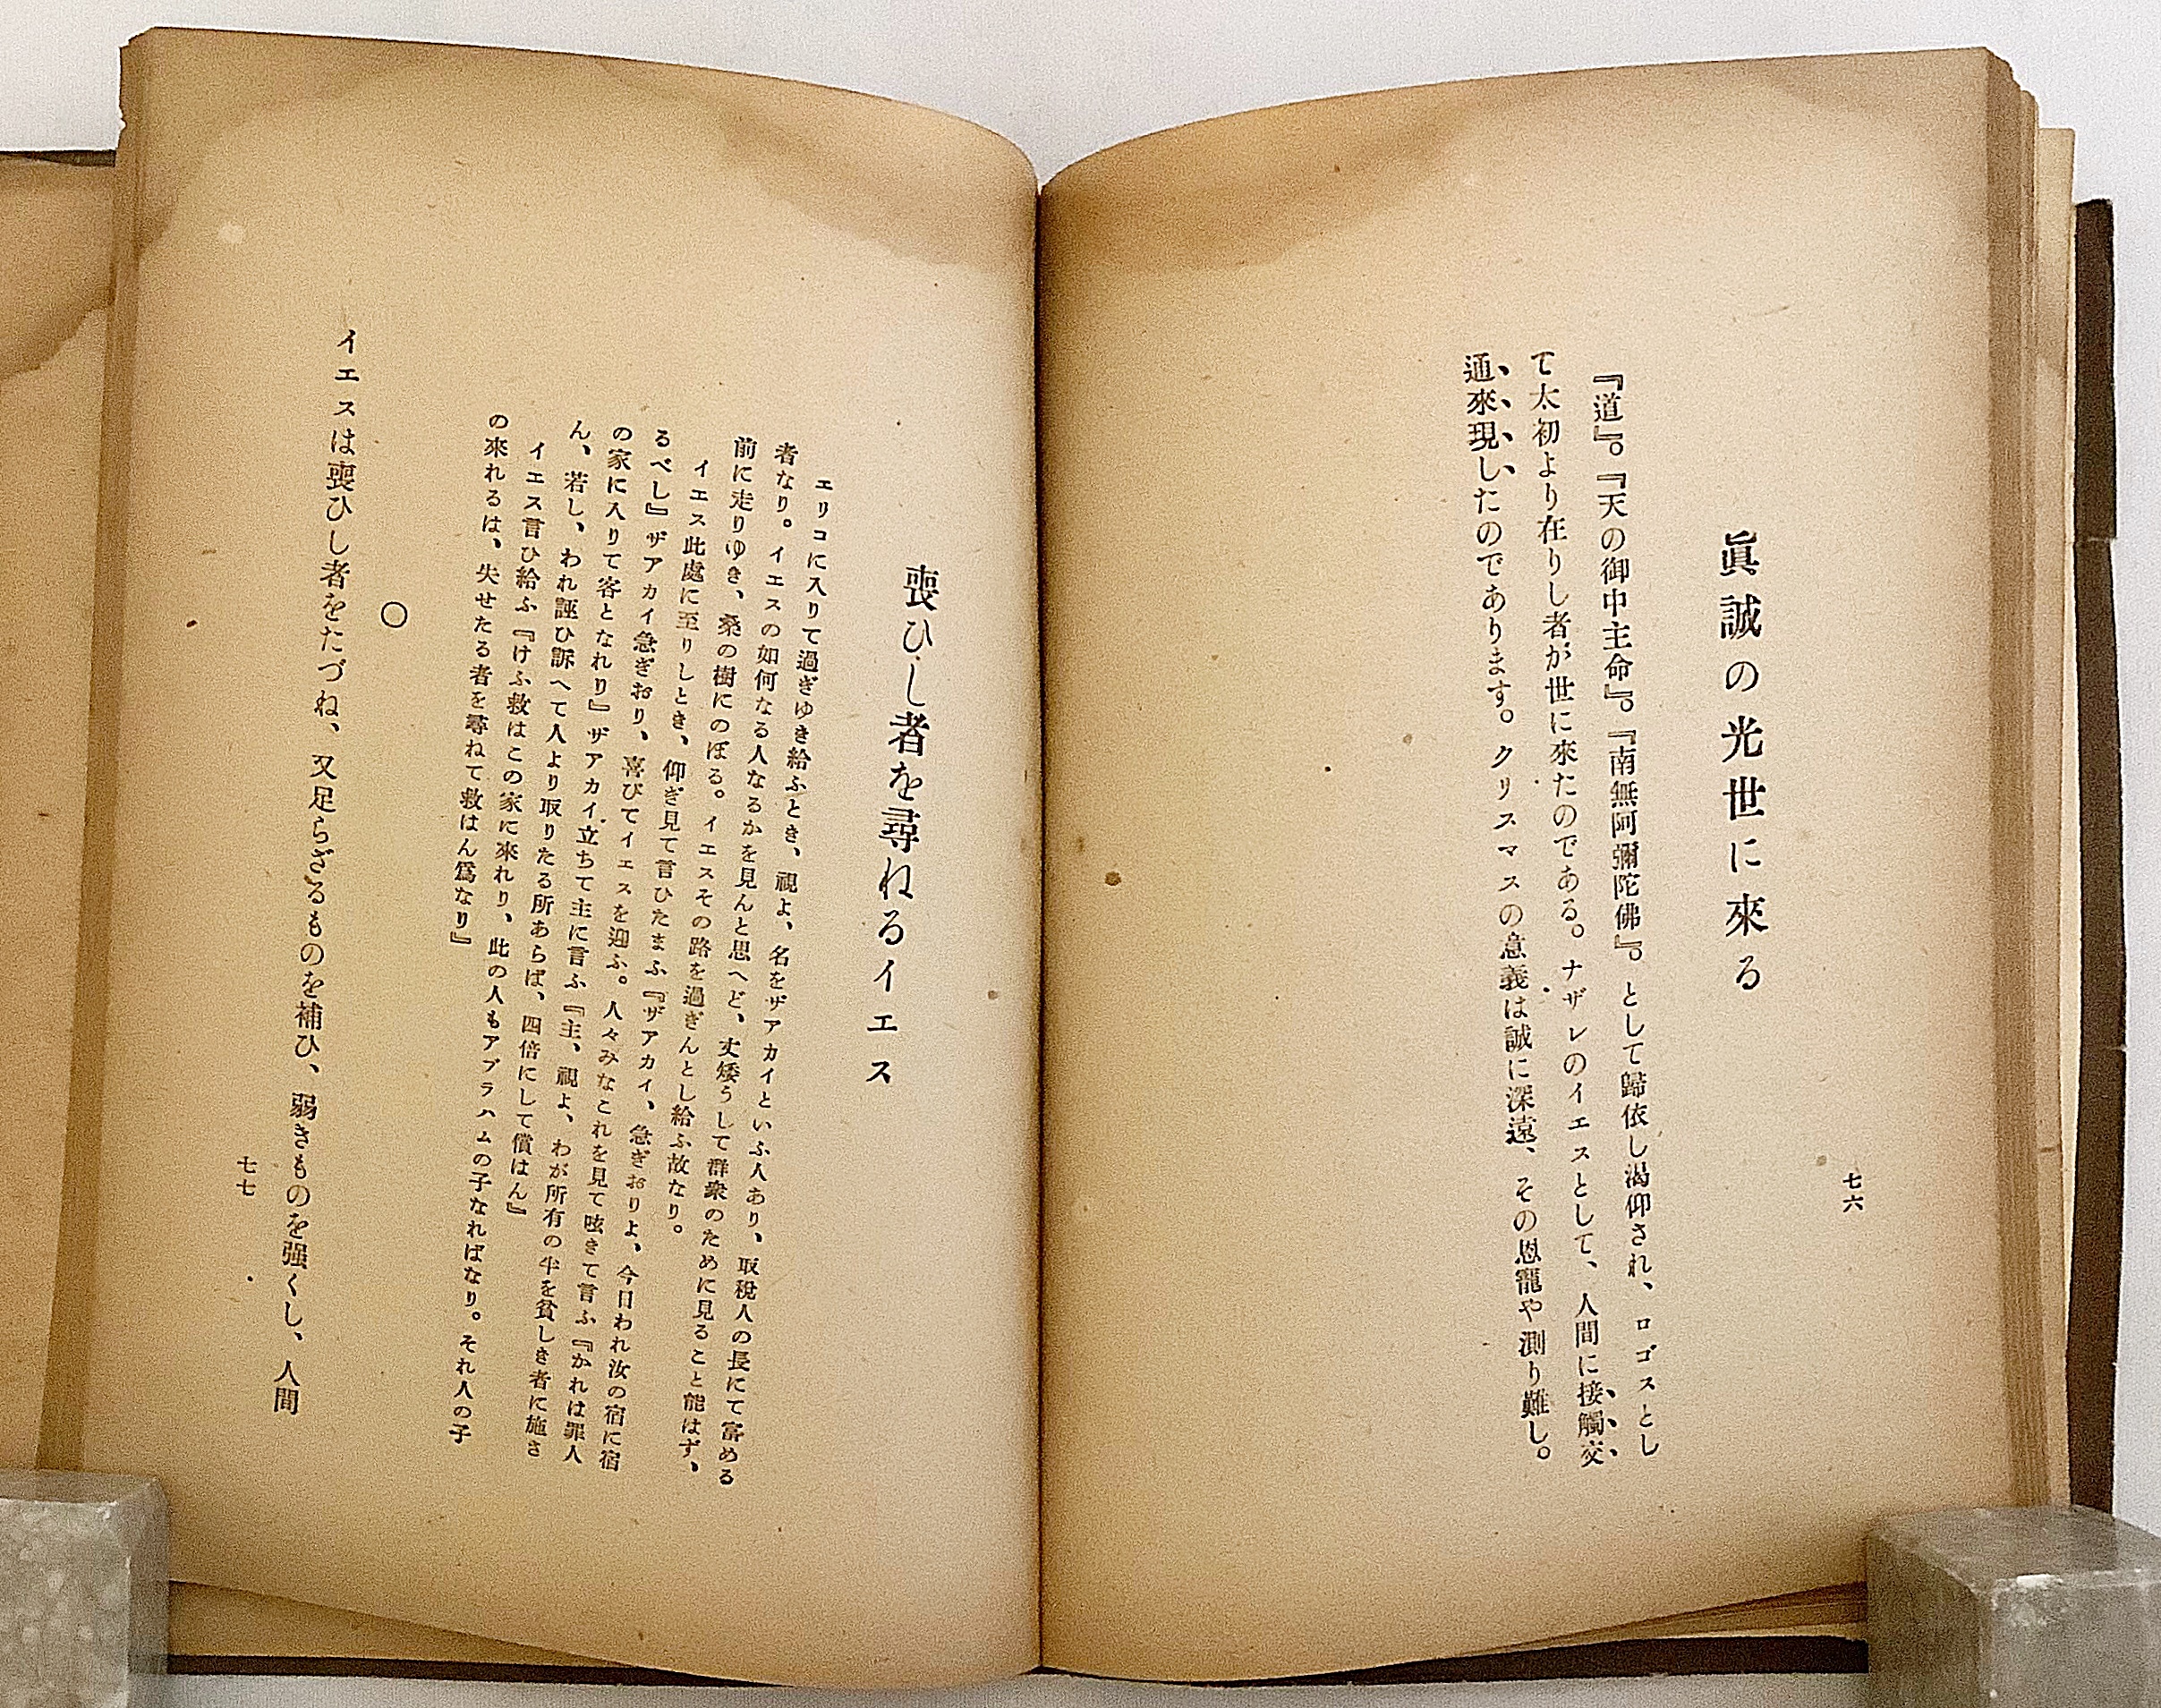 七六
眞誠の光世に來る
『道』。『天の御中主命』。『南無阿彌陀佛』。として歸依し渇仰され、ロゴスとし
て太初より在りし者が世に來たのである。ナザレのイエスとして、人間に接觸交
通來現したのであります。クリスマスの意義は誠に深遠、その恩寵や測り難し。
喪ひし者を尋ねるイエス
エリコに入りて過ぎゆき給ふとき、視よ、名をザアカイといふ人あり、取税人の長にて富める
者なり。イエスの如何なる人なるかを見んと思へど、丈矮うして群衆のために見ること能はず、
前に走りゆき、桑の樹にのぼる。イエスその路を過ぎんとし給ふ故なり。
イエス此處に至りしとき、仰ぎ見て言ひたまふ『ザアカイ、急ぎおりよ、今日われ汝の宿に宿
るべし』ザアカイ急ぎおり、喜びてイエスを迎ふ。人々みなこれを見て呟きて言ふ『かれは罪人
の家に入りて客となれり』ザアカイ立ちて主に言ふ『主、視よ、わが所有の半を貧しき者に施さ
ん、若し、われ誣ひ訴へて人より取りたる所あらば、四倍にして償はん』
イエス言ひ給ふ『けふ救はこの家に來れり、此の人もアブラハムの子なればなり。それ人の子
の來れるは、失せたる者を尋ねて救はん爲なり』
〇
イエスは喪ひし者をたづね、又足らざるものを補ひ、弱きものを强くし、人間
七七